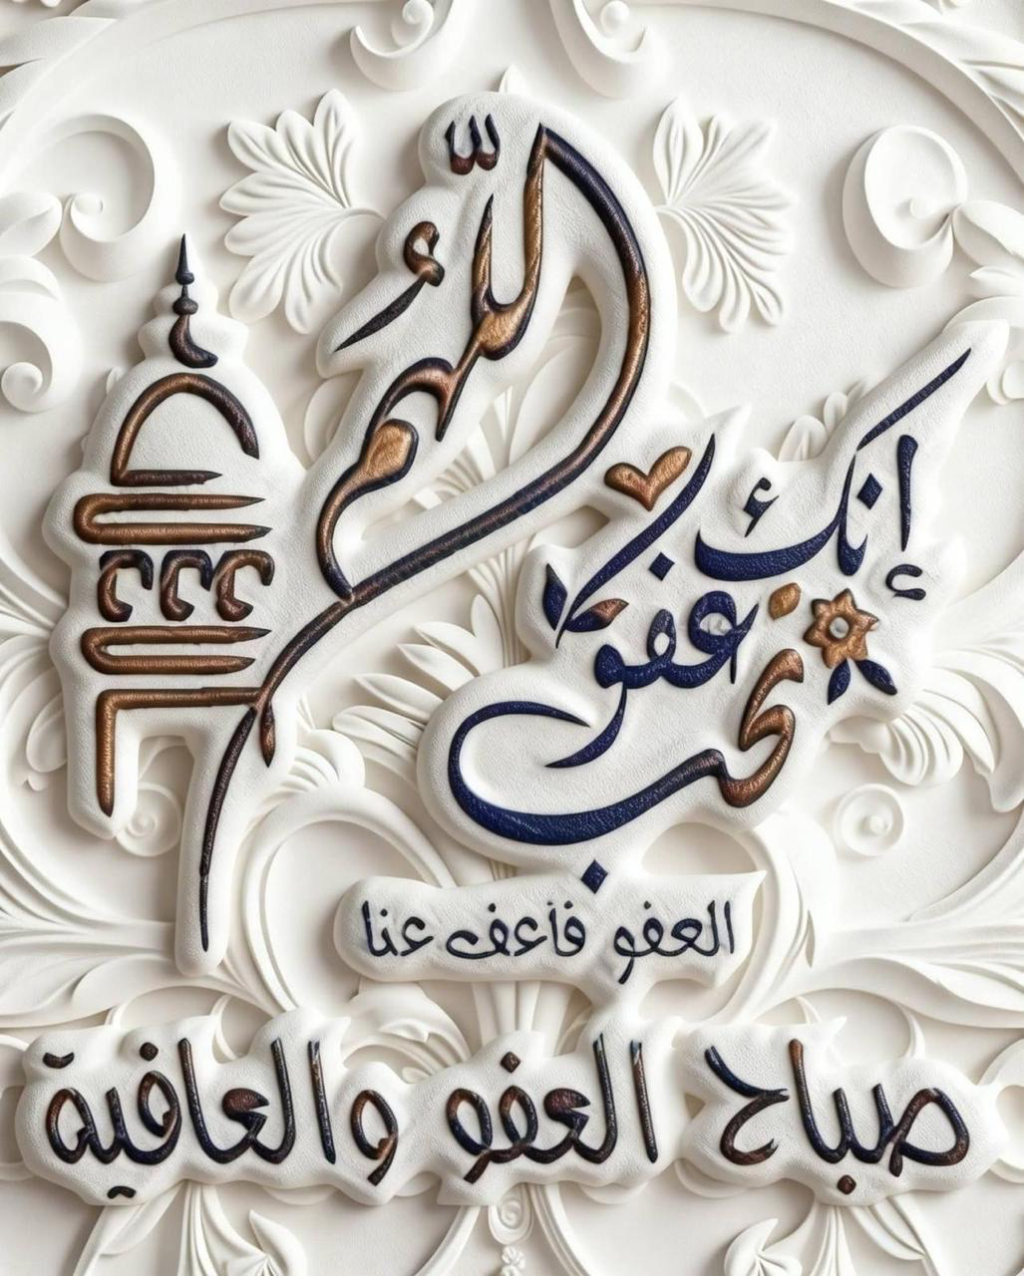 اللّهُم
إنك
عفو
تحب
العفو فأعف عنا
صباح العفو والعافية